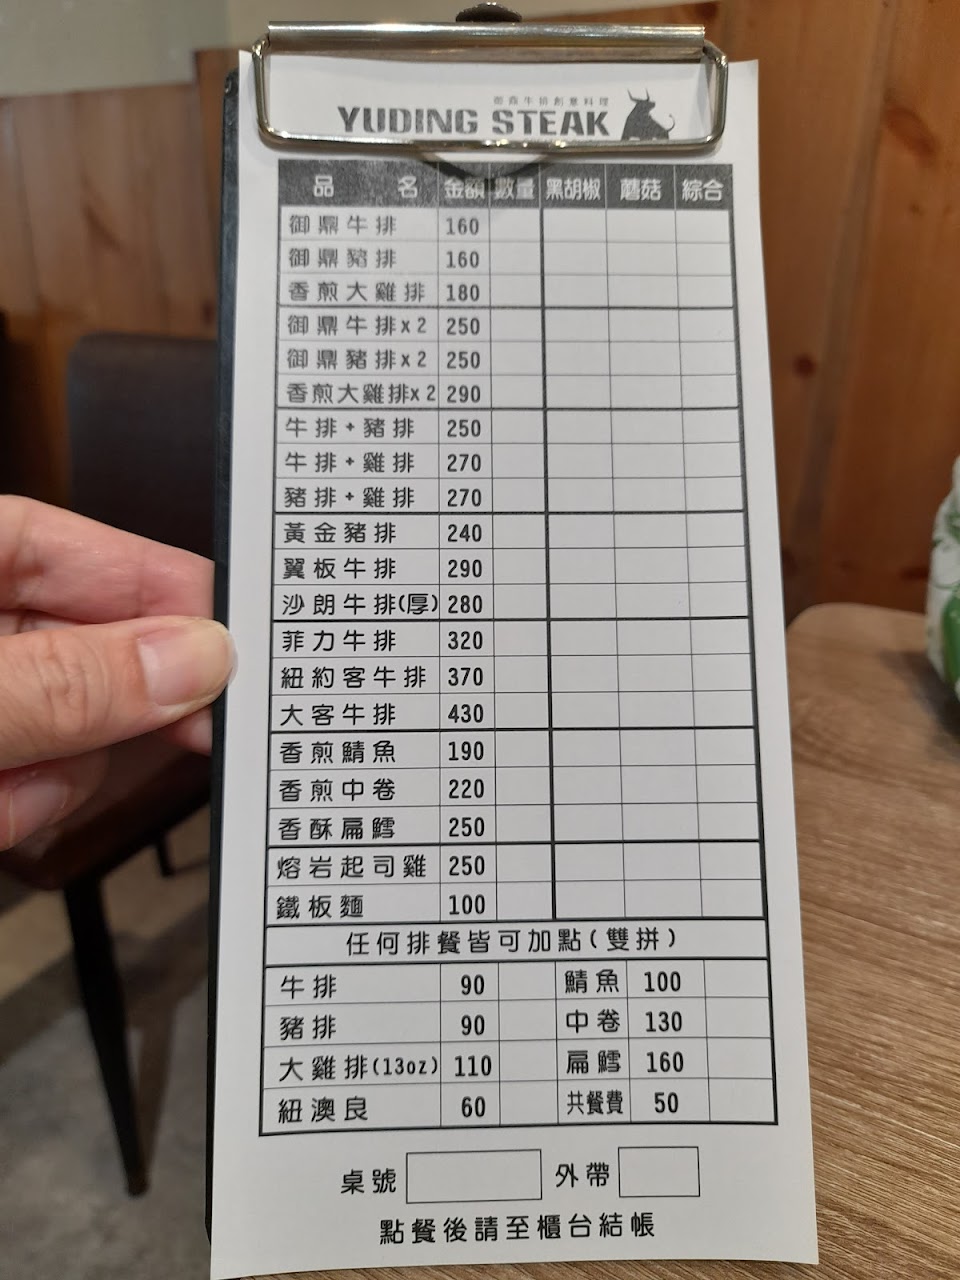 御鼎牛排創意料理
YUDING STEAK
品名 金額 數量 黑胡椒 蘑菇 綜合
御鼎牛排 160
御鼎豬排 160
香煎大雞排 180
御鼎牛排x2 250
御鼎豬排x2 250
香煎大雞排x2 290
牛排+豬排 250
牛排+雞排 270
豬排+雞排 270
黃金豬排 240
翼板牛排 290
沙朗牛排(厚) 280
菲力牛排 320
紐約客牛排 370
大客牛排 430
香煎鯖魚 190
香煎中卷 220
香酥扁鱈 250
熔岩起司雞 250
鐵板麵 100
任何排餐皆可加點(雙拼)
牛排 90 鯖魚 100
豬排 90 中卷 130
大雞排(13oz) 110 扁鱈 160
紐澳良 60 共餐費 50
桌號 外帶
點餐後請至櫃台結帳